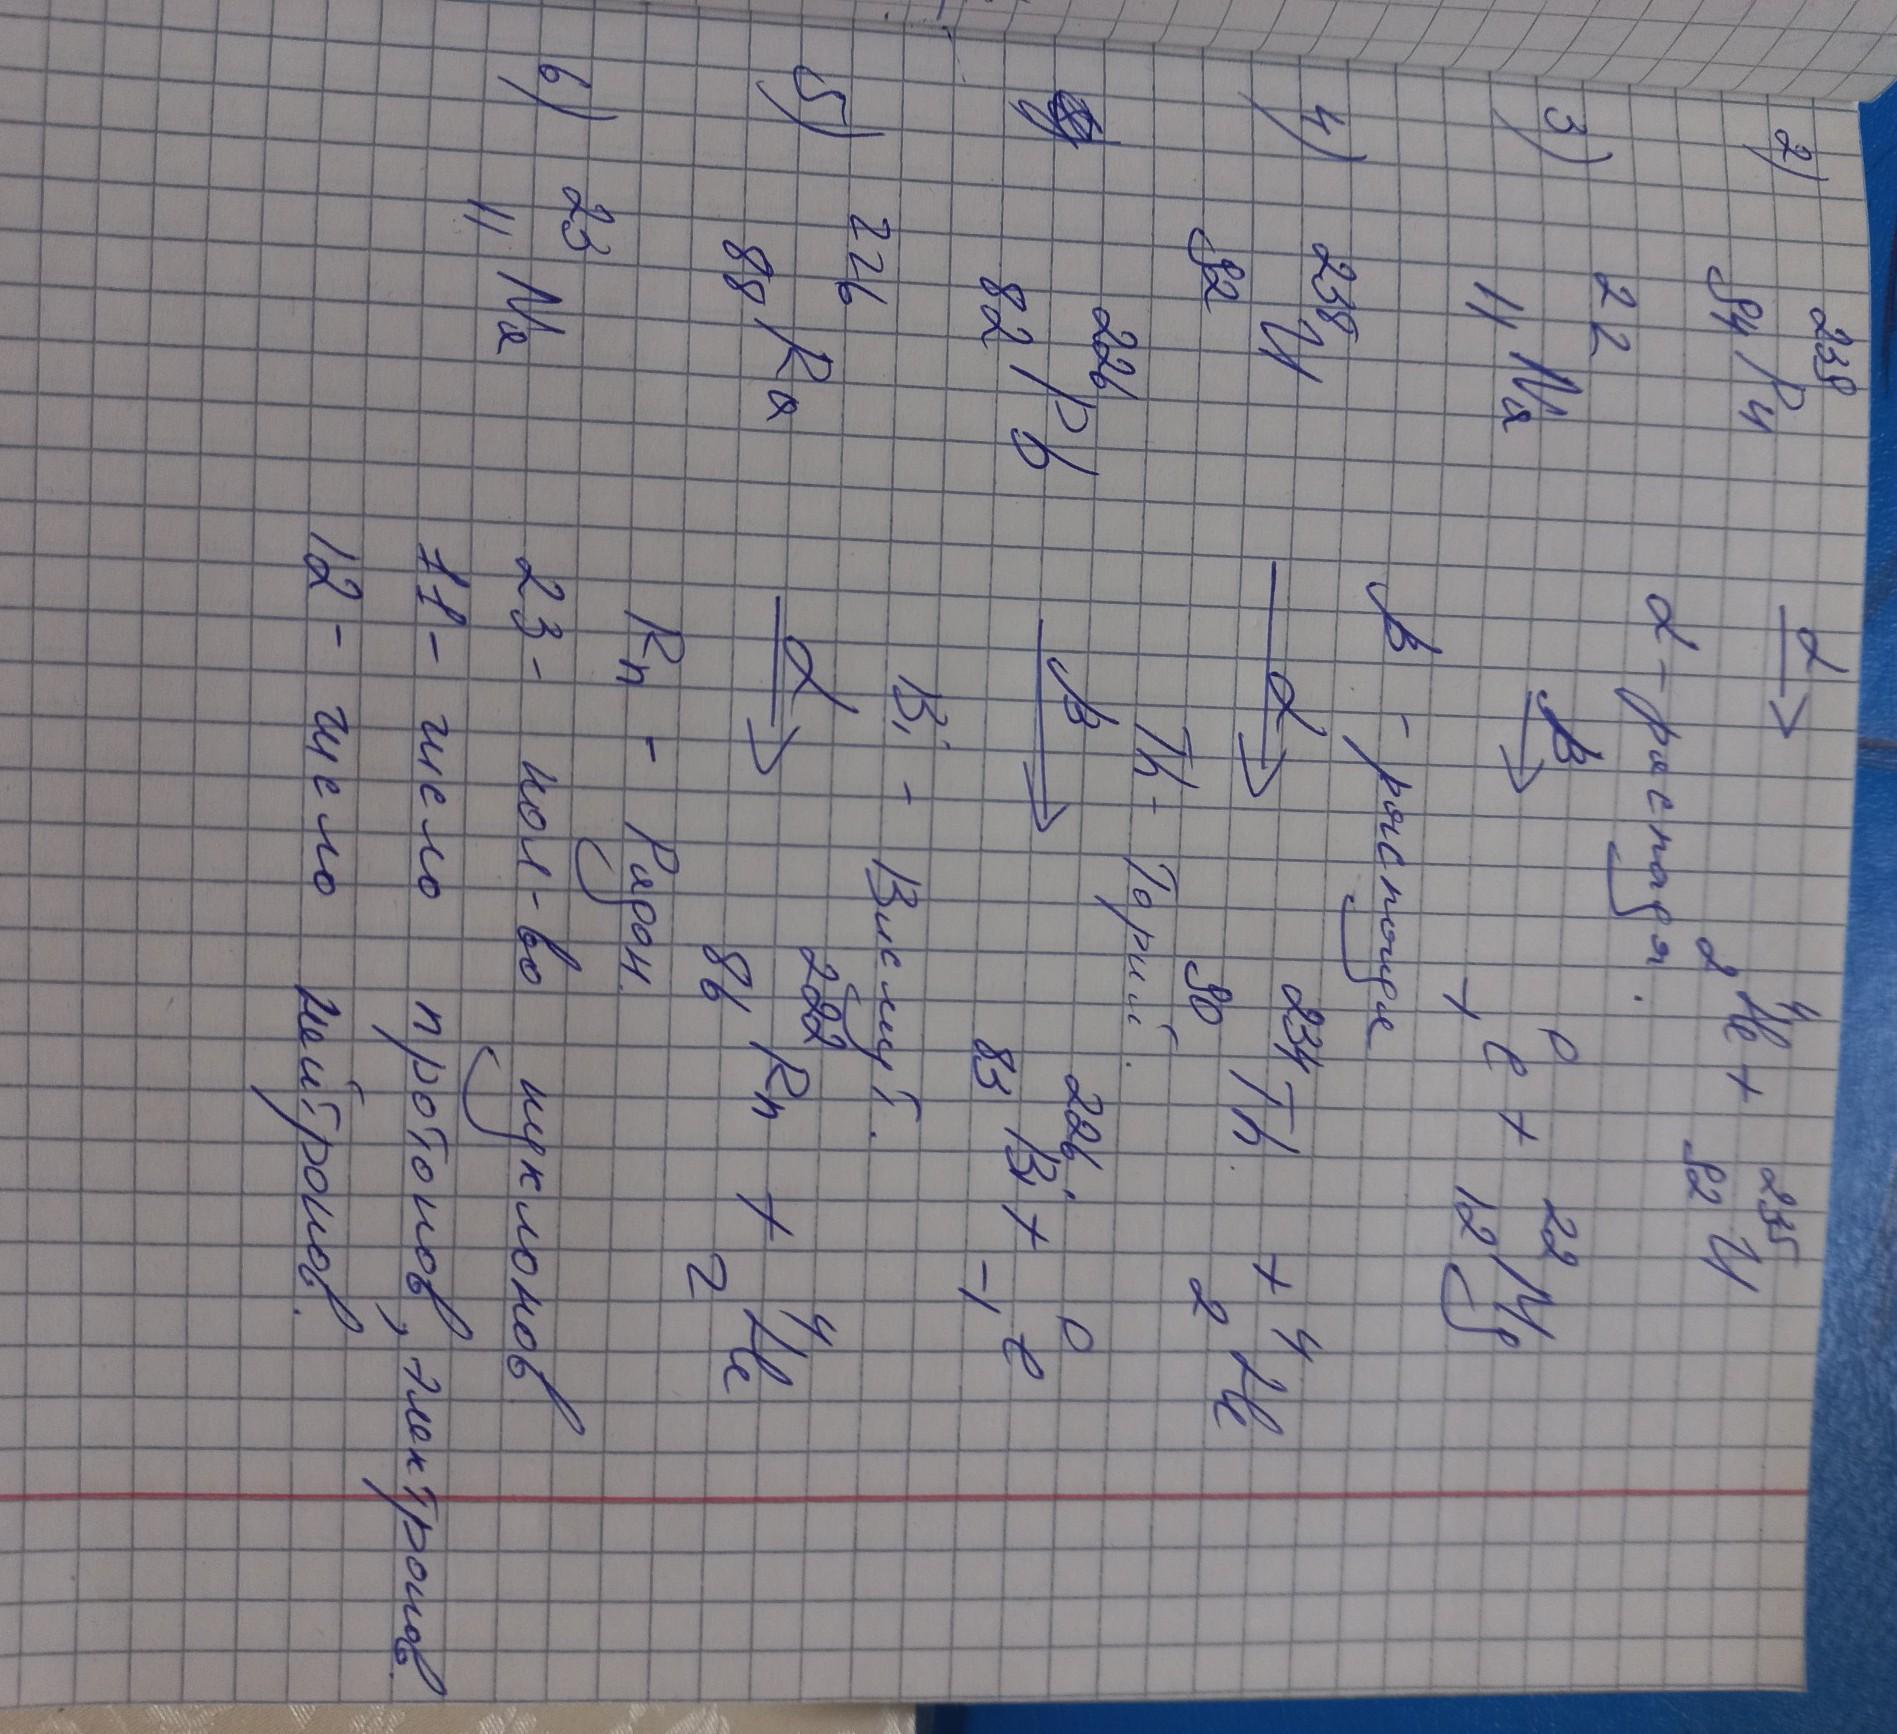 2) ²³⁹₉₄Pu →α ⁴₂He + ²³⁵₉₂U
α - распада.
3) ²²₁₁Na →β ⁰₊₁e + ²²₁₂Mg
β - распаде
4) ²³⁸₉₂U →α ²³⁴₉₀Th + ⁴₂He
Th - Торий.
²²⁶₈₂Pb →β ²²⁶₈₃Bi + ⁰₋₁e
Bi - Висмут.
5) ²²⁶₈₈Ra →α ²²²₈₆Rn + ⁴₂He
Rn - Радон.
6) ²³₁₁Na 23 - кол-во нуклонов
11 - число протонов, электронов.
12 - число нейтронов.